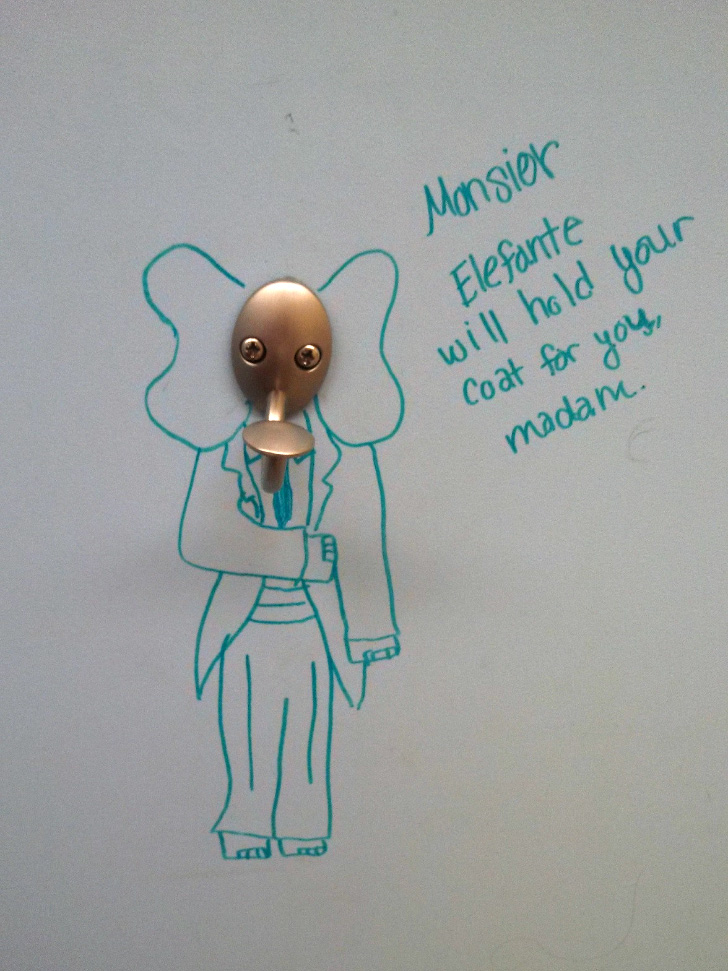 Monsier
Elefante
will hold your
coat for you,
madam.